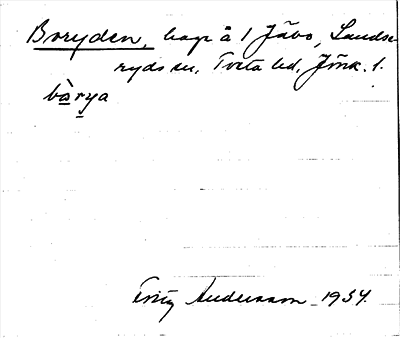 Boryden, hage å 1 Jävo, Lands-
ryds sn, Tveta hd, Jönk. l.
bàrya
Fritz Andersson 1934.